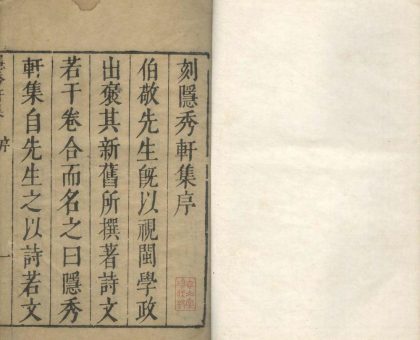 刻隱秀軒集序
伯敬先生旣以視閩學政
出裒其新舊所撰著詩文
若干卷合而名之曰隱秀
軒集自先生之以詩若文
序